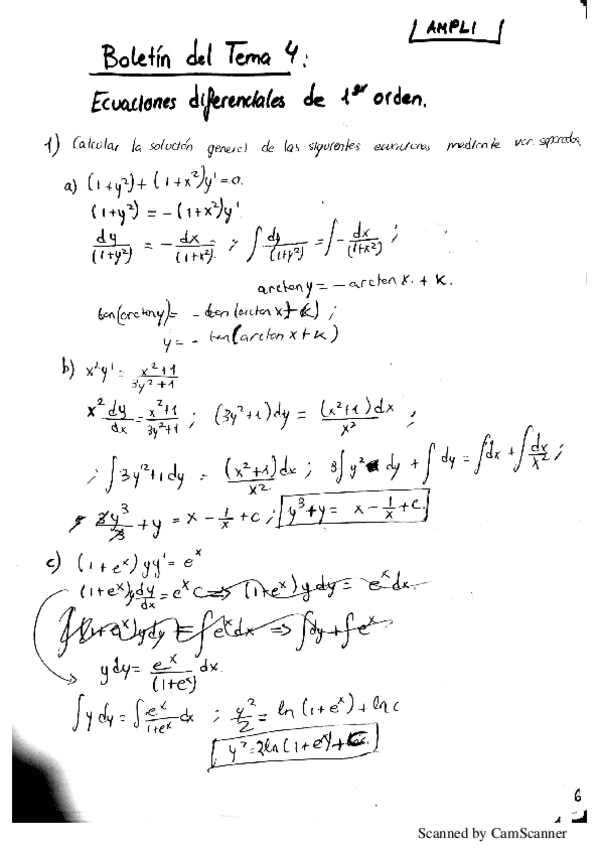 AMPLI
Boletín del Tema 4:
Ecuaciones diferenciales de 1er orden.
1) Calcular la solución general de las siguientes ecuaciones mediante var. separadas
a) (1+y²)+(1+x²)y'=0.
(1+y²) = -(1+x²)y'
dy/(1+y²) = - dx/(1+x²) ; ∫ dy/(1+y²) = ∫ - dx/(1+x²) ;
arctan y = - arctan x. + K.
tan(arctan y) = - tan(arctan x + K) ;
y = - tan(arctan x + K)
b) x²y' = x²+1/3y²+1
x² dy/dx = x²+1/3y²+1 ; (3y²+1)dy = (x²+1)dx/x² ;
; ∫ 3y²+1 dy = (x²+1)dx/x² ; 3∫y² dy + ∫dy = ∫dx + ∫dx/x² ;
3y³/3 + y = x - 1/x + c ; y³+y = x - 1/x + c.
c) (1+eˣ)yy' = eˣ
(1+eˣ)y dy/dx = eˣ => (1+eˣ)y dy = eˣ dx.
∫(1+eˣ)y dy = ∫eˣ dx => ∫dy + ∫eˣ
y dy = eˣ/(1+eˣ) dx.
∫y dy = ∫ eˣ/1+eˣ dx ; y²/2 = ln(1+eˣ) + ln c
y² = 2ln(1+eˣ) +
6
Scanned by CamScanner